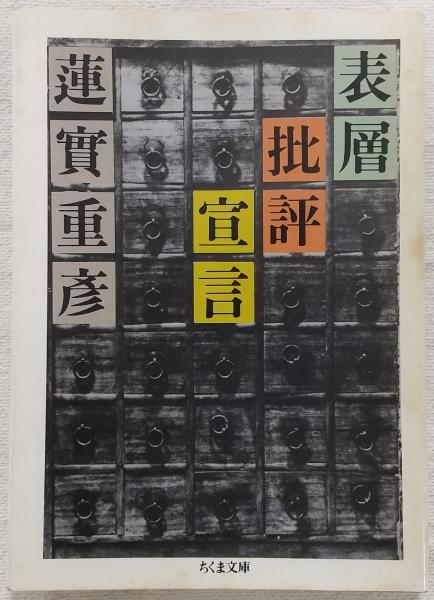 表層
批評
宣言
蓮實重彥
ちくま文庫